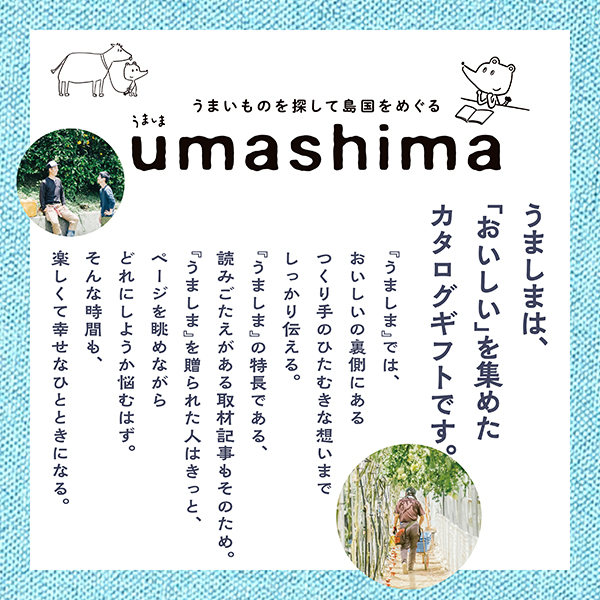 うまいものを探して島国をめぐる
うましま
umashima
うましまは、
「おいしい」を集めた
カタログギフトです。
『うましま』では、
おいしいの裏側にある
つくり手のひたむきな想いまで
しっかり伝える。
『うましま』の特長である、
読みごたえがある取材記事もそのため。
『うましま』を贈られた人はきっと、
ページを眺めながら
どれにしようか悩むはず。
そんな時間も、
楽しくて幸せなひとときになる。